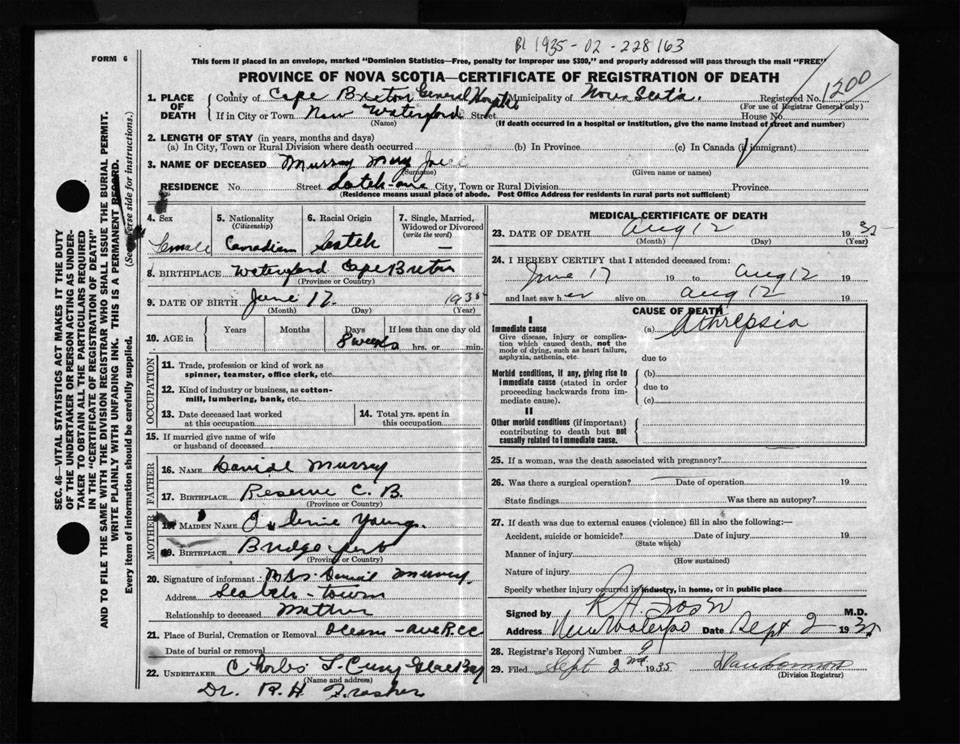 BL 1935-02-228163
FORM 6
This form if placed in an envelope, marked "Dominion Statistics—Free, penalty for improper use $300," and properly addressed will pass through the mail "FREE"
PROVINCE OF NOVA SCOTIA—CERTIFICATE OF REGISTRATION OF DEATH
1200
1. PLACE OF DEATH
County of Cape Breton General Municipality of Nova Scotia Registered No.
(For use of Registrar General only)
If in City or Town New Waterford Street House No.
(Name) (If death occurred in a hospital or institution, give the name instead of street and number)
2. LENGTH OF STAY (in years, months and days)
(a) In City, Town or Rural Division where death occurred (b) In Province (c) In Canada (if immigrant)
3. NAME OF DECEASED Murray Mary
(Surname) (Given name or names)
RESIDENCE No. Street City, Town or Rural Division Province
(Residence means usual place of abode. Post Office Address for residents in rural parts not sufficient)
4. Sex
Female
5. Nationality
(Citizenship)
Canadian
6. Racial Origin
Scotch
7. Single, Married, Widowed or Divorced
(write the word)
—
8. BIRTHPLACE Waterford Cape Breton
(Province or Country)
9. DATE OF BIRTH June 17. 1935
(Month) (Day) (Year)
10. AGE in
Years Months Days If less than one day old
8 weeks hrs. or min.
OCCUPATION
11. Trade, profession or kind of work as
spinner, teamster, office clerk, etc.
12. Kind of industry or business, as cotton-
mill, lumbering, bank, etc.
13. Date deceased last worked
at this occupation
14. Total yrs. spent in
this occupation
15. If married give name of wife
or husband of deceased
FATHER
16. NAME Danial Murray
17. BIRTHPLACE Reserve C. B.
(Province or Country)
MOTHER
18. MAIDEN NAME Young
19. BIRTHPLACE Bridgeport
(Province or Country)
20. Signature of informant Mrs. Danial Murray
Address Scotch-town
Relationship to deceased Mother
21. Place of Burial, Cremation or Removal Ocean-ave
Date of burial or removal
22. UNDERTAKER Glace Bay
(Name and address)
Dr. R. H. Frasher
MEDICAL CERTIFICATE OF DEATH
23. DATE OF DEATH Aug 12 1935
(Month) (Day) (Year)
24. I HEREBY CERTIFY that I attended deceased from:
June 17 19 to Aug 12 19
and last saw her alive on Aug 12 19
CAUSE OF DEATH
I
Immediate cause
Give disease, injury or complica-
tion which caused death, not the
mode of dying, such as heart failure,
asphyxia, asthenia, etc.
(a) Athrepsia
due to
Morbid conditions, if any, giving rise to
immediate cause (stated in order
proceeding backwards from im-
mediate cause).
(b)
due to
(c)
II
Other morbid conditions (if important)
contributing to death but not
causally related to immediate cause.
25. If a woman, was the death associated with pregnancy?
26. Was there a surgical operation? Date of operation 19
State findings Was there an autopsy?
27. If death was due to external causes (violence) fill in also the following:—
Accident, suicide or homicide? Date of injury 19
(State which)
Manner of injury
(How sustained)
Nature of injury
Specify whether injury occurred in industry, in home, or in public place
Signed by M.D.
Address Date Sept 2 1935
28. Registrar's Record Number 9
29. Filed Sept 2nd 1935
(Division Registrar)
SEC. 46—VITAL STATISTICS ACT MAKES IT THE DUTY
OF THE UNDERTAKER OR PERSON ACTING AS UNDER-
TAKER TO OBTAIN ALL THE PARTICULARS REQUIRED
IN THE "CERTIFICATE OF REGISTRATION OF DEATH"
AND TO FILE THE SAME WITH THE DIVISION REGISTRAR WHO SHALL ISSUE THE BURIAL PERMIT.
WRITE PLAINLY WITH UNFADING INK. THIS IS A PERMANENT RECORD.
Every item of information should be carefully supplied. (See reverse side for instructions.)